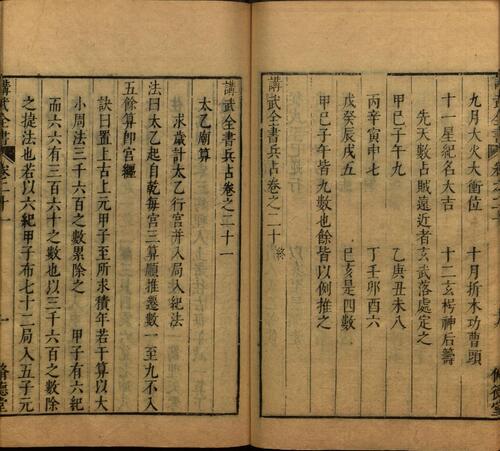 九月大火大衝位　十月折木功曹頭
十一星紀名大吉　十二玄枵神后籌
先天數占賊遠近者玄武落處定之
甲巳子午九　乙庚丑未八
丙辛寅申七　丁壬卯酉六
戊癸辰戌五　巳亥是四數
甲巳子午皆九數也餘皆以例推之
講武全書兵占卷之二十終
講武全書兵占卷之二十一
太乙廟算
求歲計太乙行宮幷入局入紀法
法曰太乙起自乾每宮三算順推遷數一至九不入
五餘算卽宮纒
訣曰置上古上元甲子至所求積年若干算以大
小周法三千六百數累除之　甲子有六紀
而六六有三百六十之數也以三千六百之數除
之捷法也若以六紀甲子布七十二局入五子元
講武全書　卷二十一　一　脩德堂